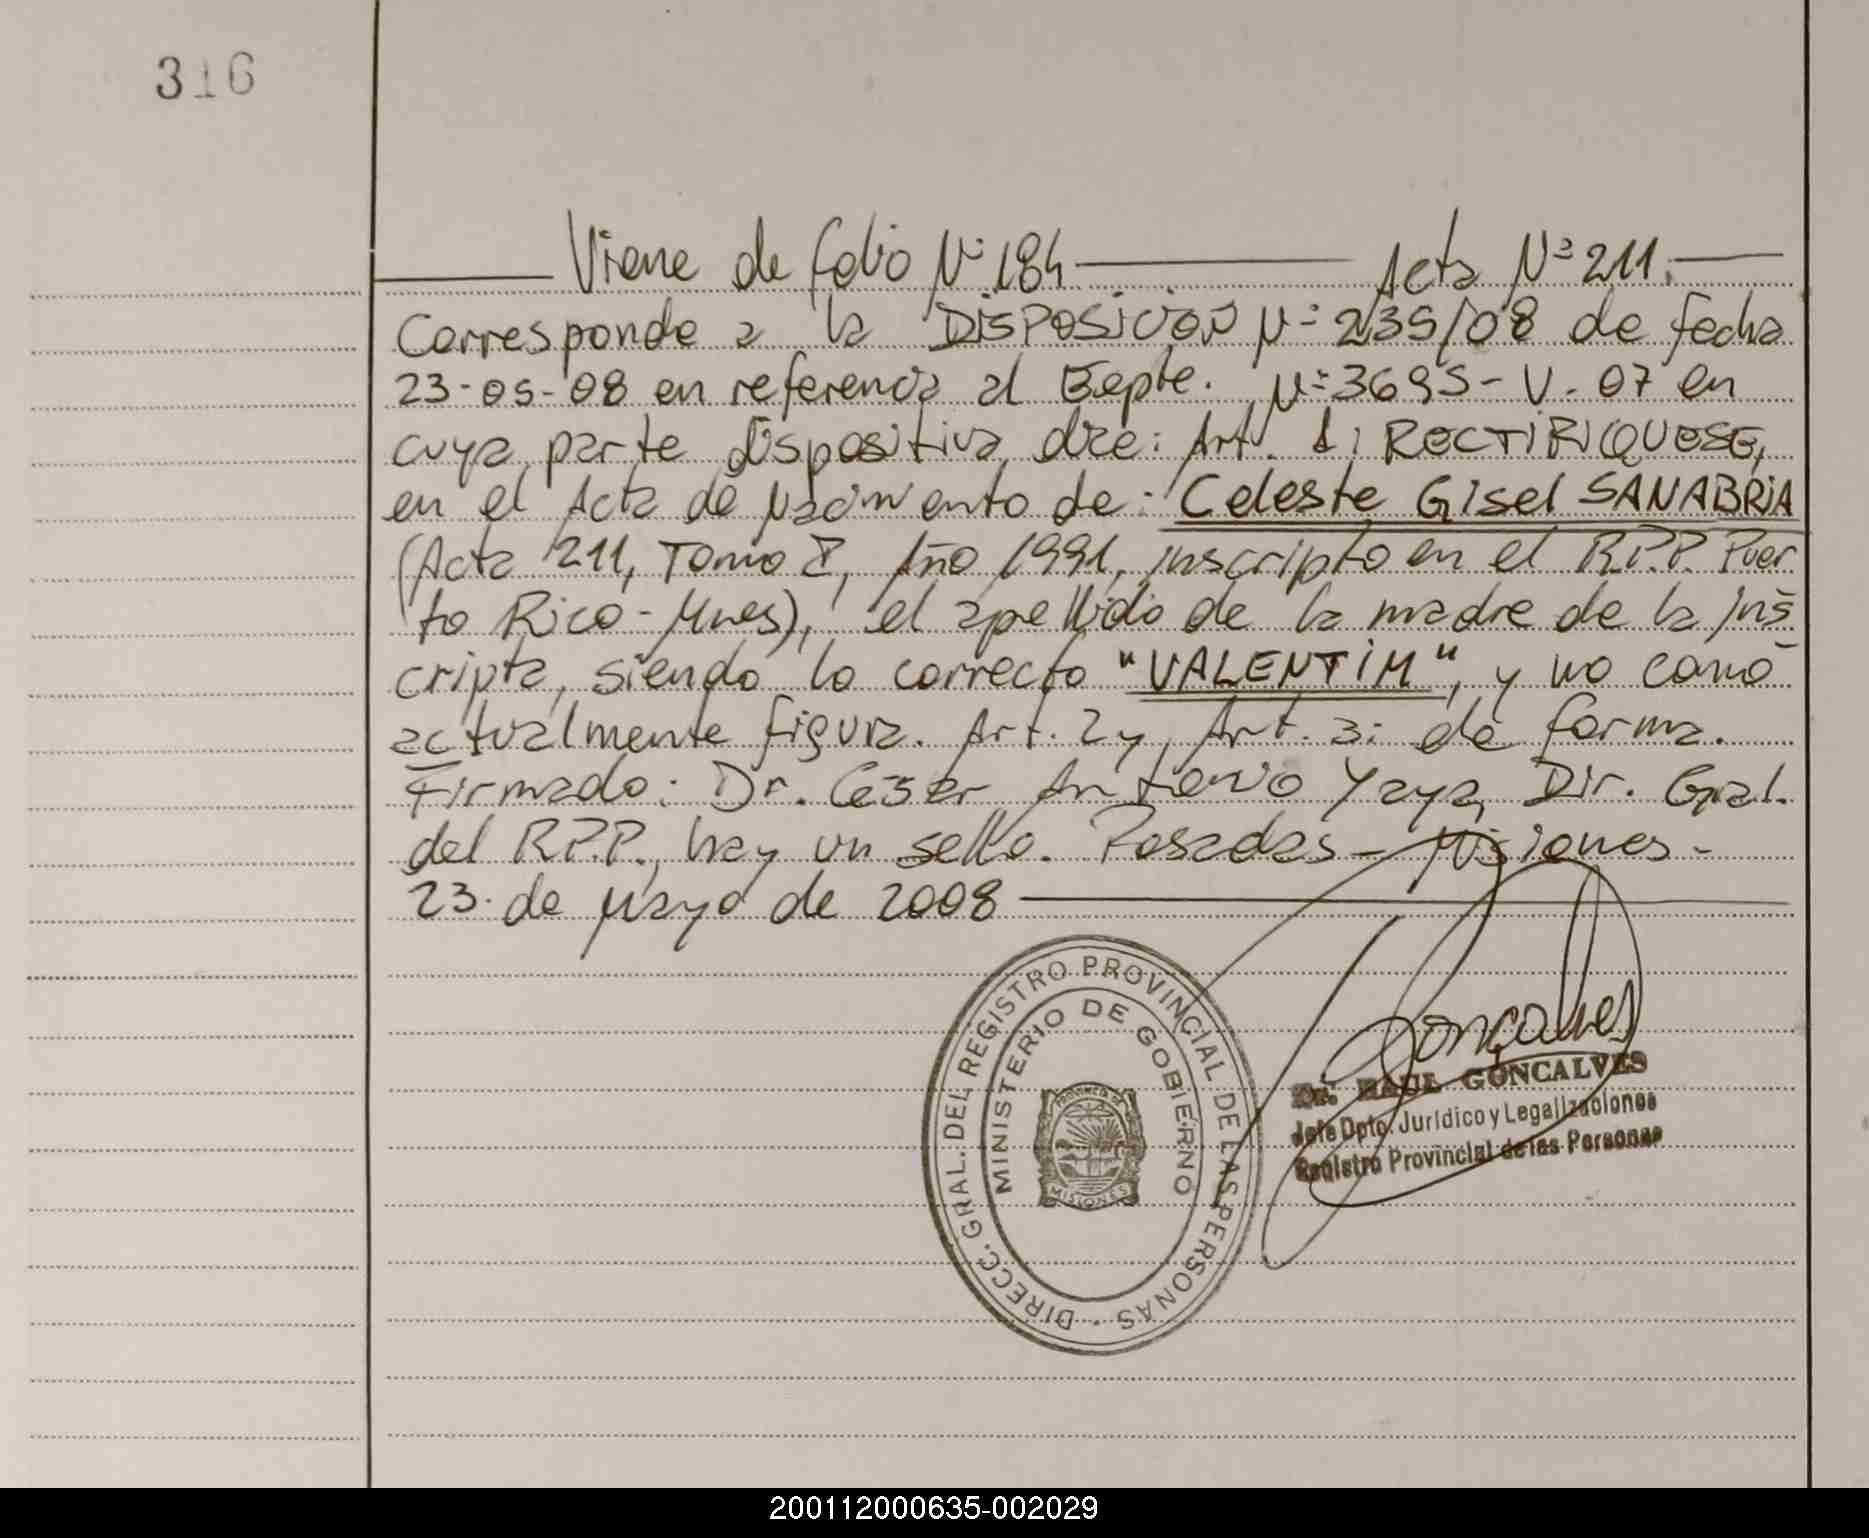 316
Viene de folio Nº 184 Acta Nº 211.
Corresponde a la DISPOSICION Nº 235/08 de fecha
23-05-08 en referencia al Expte. Nº 3695-V-07 en
cuya parte dispositiva dice: Art. 1: RECTIFIQUESE,
en el Acta de Nacimiento de: Celeste Gisel SANABRIA
(Acta 211, Tomo I, Año 1991, inscripto en el R.P.P. Puer
to Rico - Mnes), el apellido de la madre de la ins
cripta, siendo lo correcto "VALENTIM", y no como
actualmente figura. Art. 2 y Art. 3: de forma.
Firmado: Dr. César Antonio Yaya, Dir. Gral.
del R.P.P., hay un sello. Posadas - Misiones -
23 de Mayo de 2008
DIRECC. GRAL. DEL REGISTRO PROVINCIAL DE LAS PERSONAS
MINISTERIO DE GOBIERNO
PROVINCIA DE
MISIONES
Gonçalves
Dr. RAUL GONCALVES
Jefe Dpto. Jurídico y Legalizaciones
Registro Provincial de las Personas
200112000635-002029